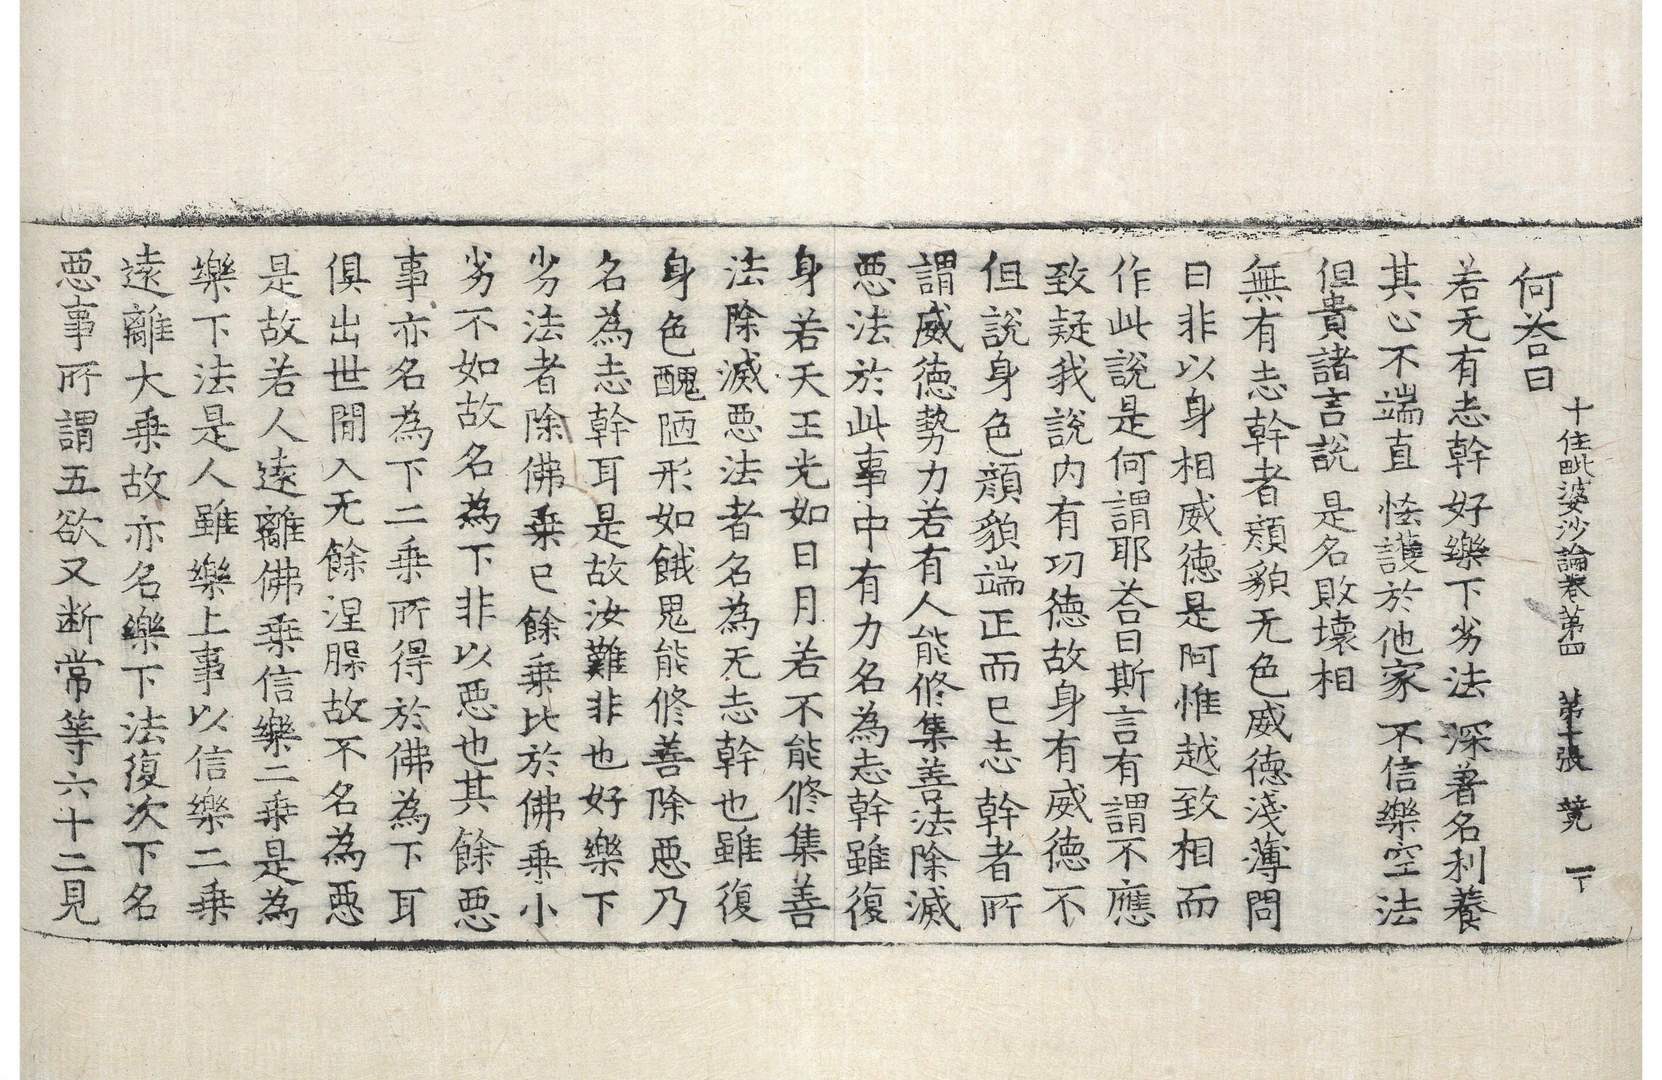 十住毗婆沙論卷苐四　苐十張　竟　下
何荅曰
若无有志幹　好樂下劣法　深著名利養
其心不端直　悋護於他家　不信樂空法
但貴諸言說　是名敗壞相
無有志幹者顔貌无色威德淺薄問
曰非以身相威德是阿惟越致相而
作此說是何謂耶荅曰斯言有謂不應
致疑我說內有功德故身有威德不
但說身色顔貌端正而已志幹者所
謂威德勢力若有人能修集善法除滅
惡法於此事中有力名為志幹雖復
身若天王光如日月若不能修集善
法除滅惡法者名為无志幹也雖復
身色醜陋形如餓鬼能修善除惡乃
名為志幹耳是故汝難非也好樂下
劣法者除佛乗已餘乗比於佛乗小
劣不如故名為下非以惡也其餘惡
事亦名為下二乗所得於佛為下耳
俱出世閒入无餘涅槃故不名為惡
是故若人遠離佛乗信樂二乗是為
樂下法是人雖樂上事以信樂二乗
遠離大乗故亦名樂下法復次下名
惡事所謂五欲又断常等六十二見